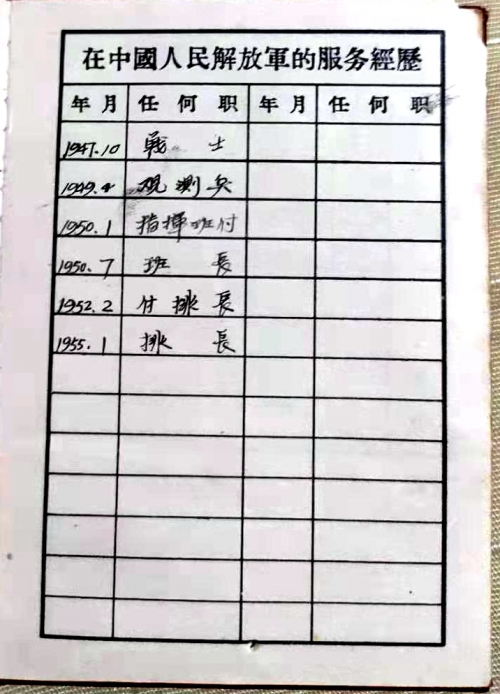 在中國人民解放軍的服务經歷
年月 任何职 年月 任何职
1947.10 戰士
1949.4 观測兵
1950.1 指揮班付
1950.7 班長
1952.2 付排長
1955.1 排長